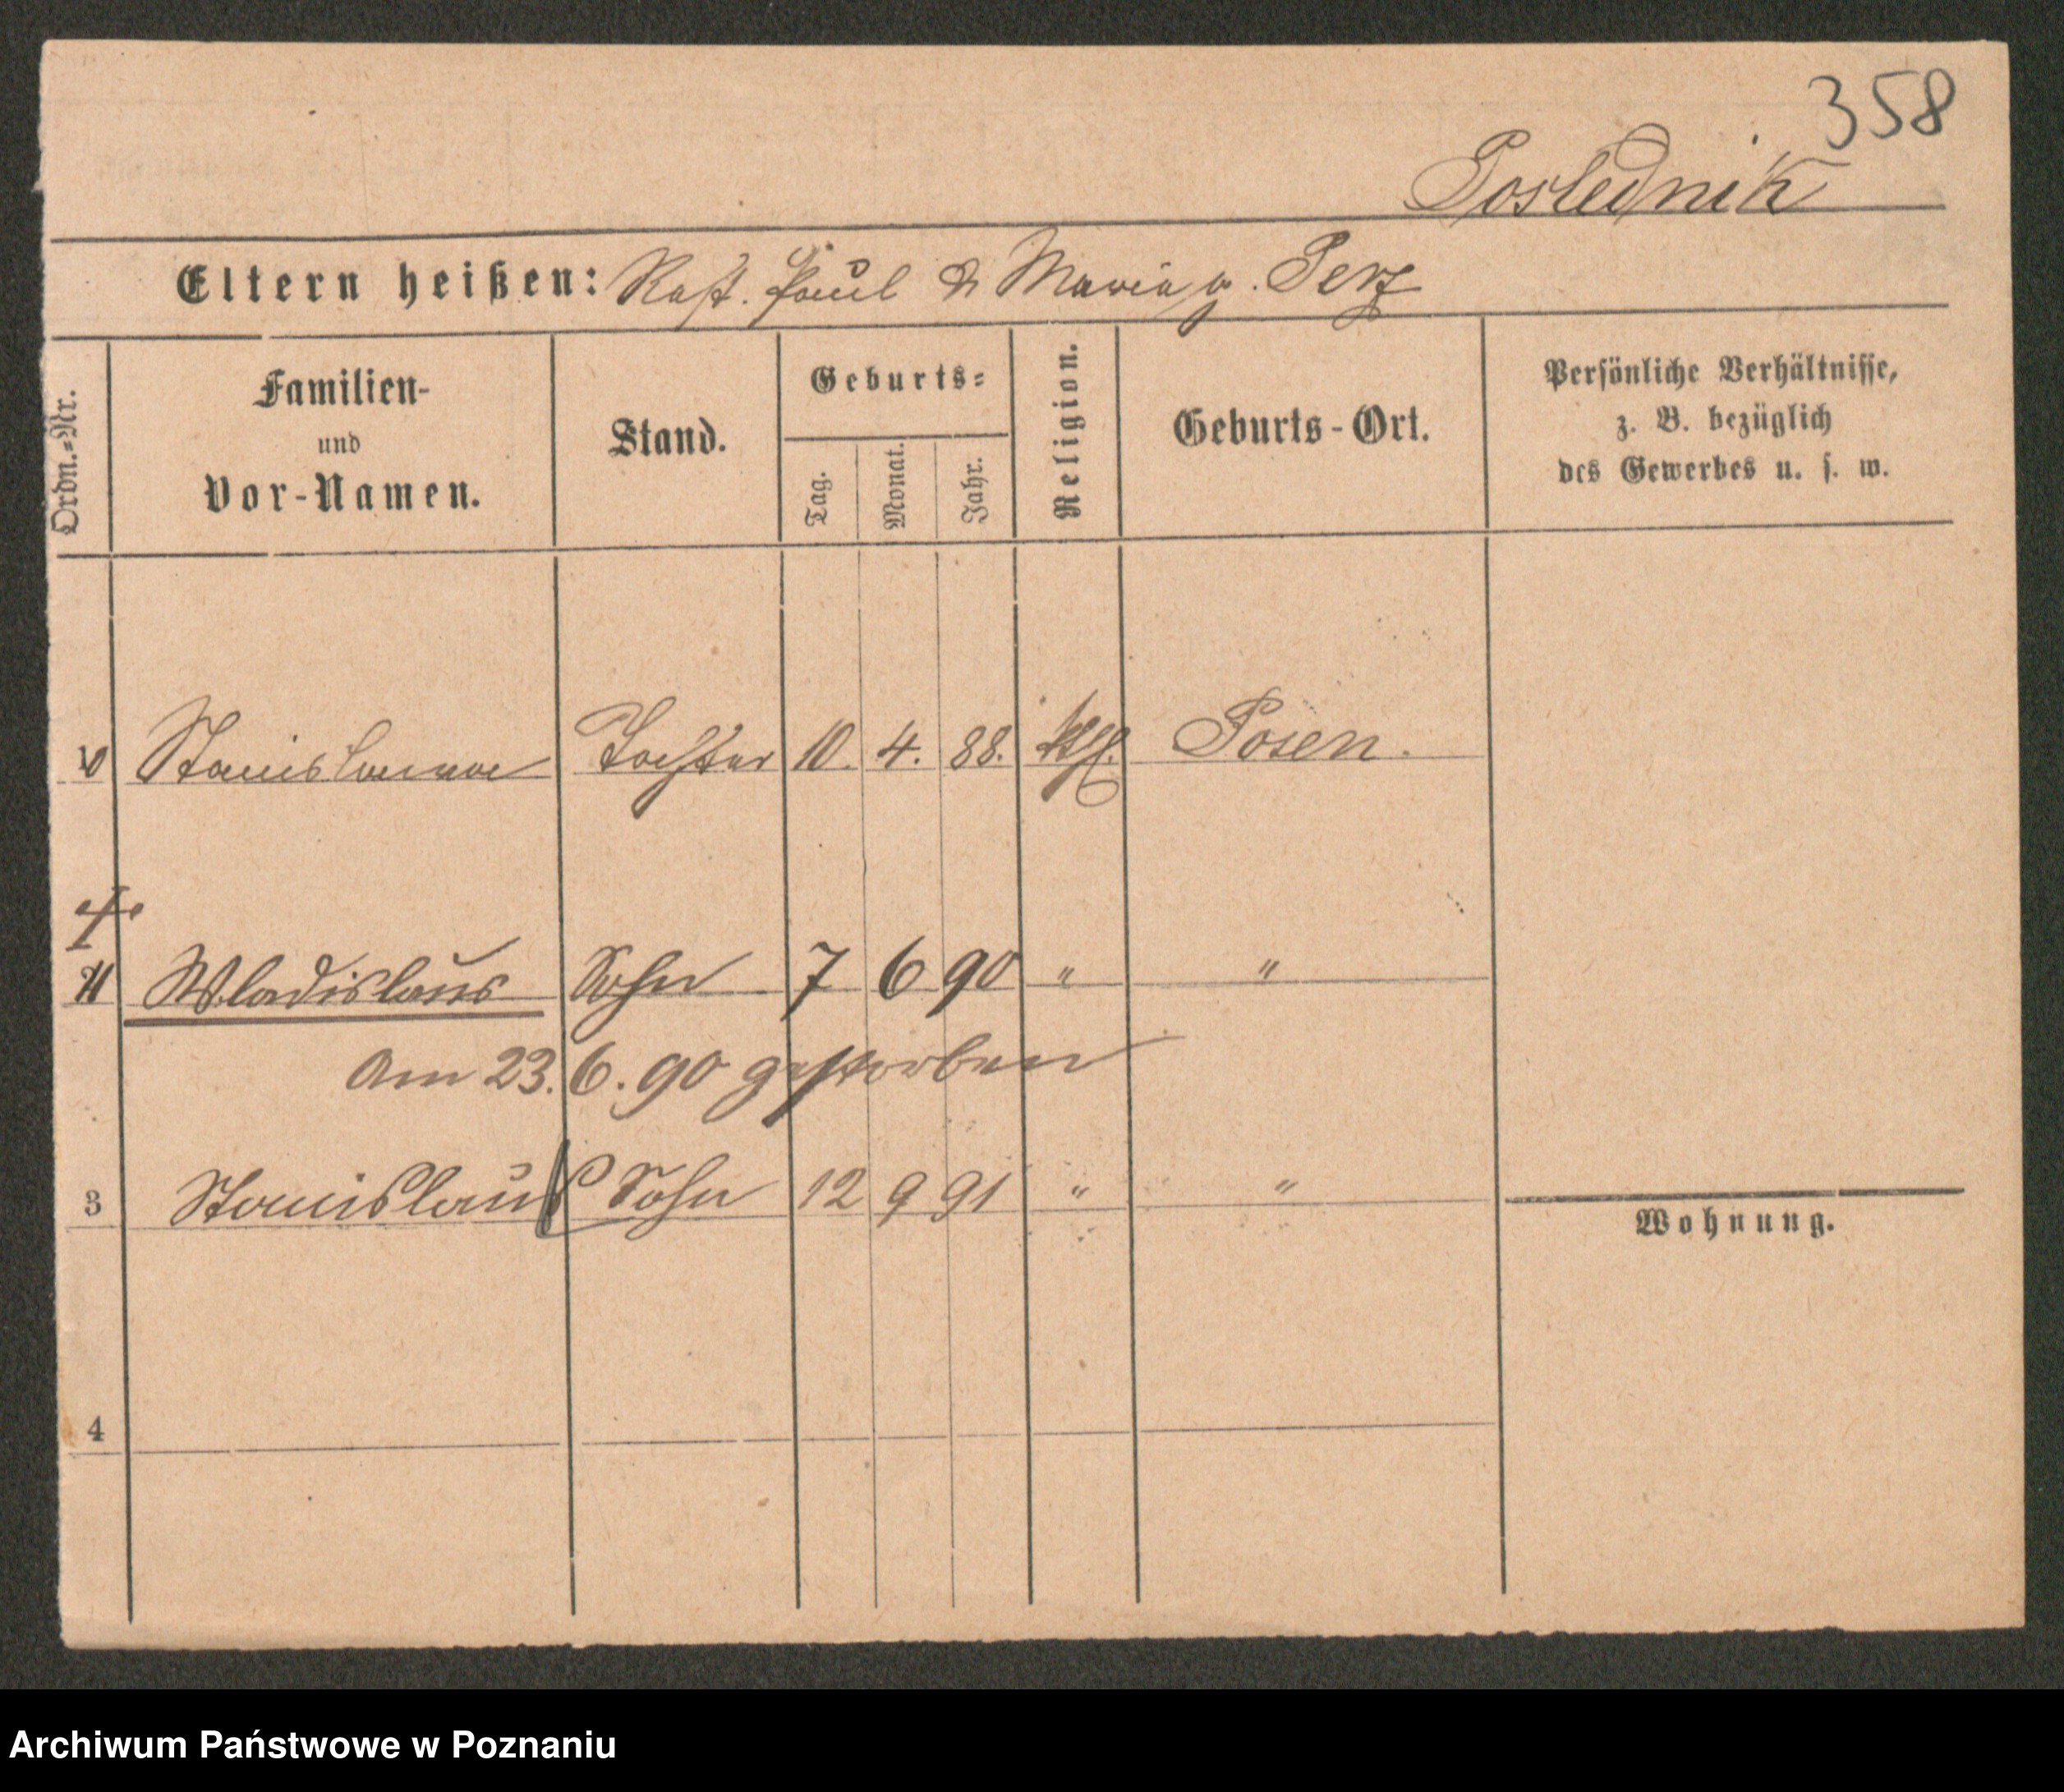 358
Poslednik
Eltern heißen: Paul & Maria g. Perz
Ordn.=Nr.
Familien-
und
Vor-Namen.
Stand.
Geburts=
Tag.
Monat.
Jahr.
Religion.
Geburts-Ort.
Persönliche Verhältnisse,
z. B. bezüglich
des Gewerbes u. s. w.
Stanislawa Tochter 10. 4. 88. kth. Posen.
Wladislaus Sohn 7 6 90 " "
Am 23. 6. 90 gestorben
3 Stanislaus Sohn 12 9 91 " "
Wohnung.
4
Archiwum Państwowe w Poznaniu